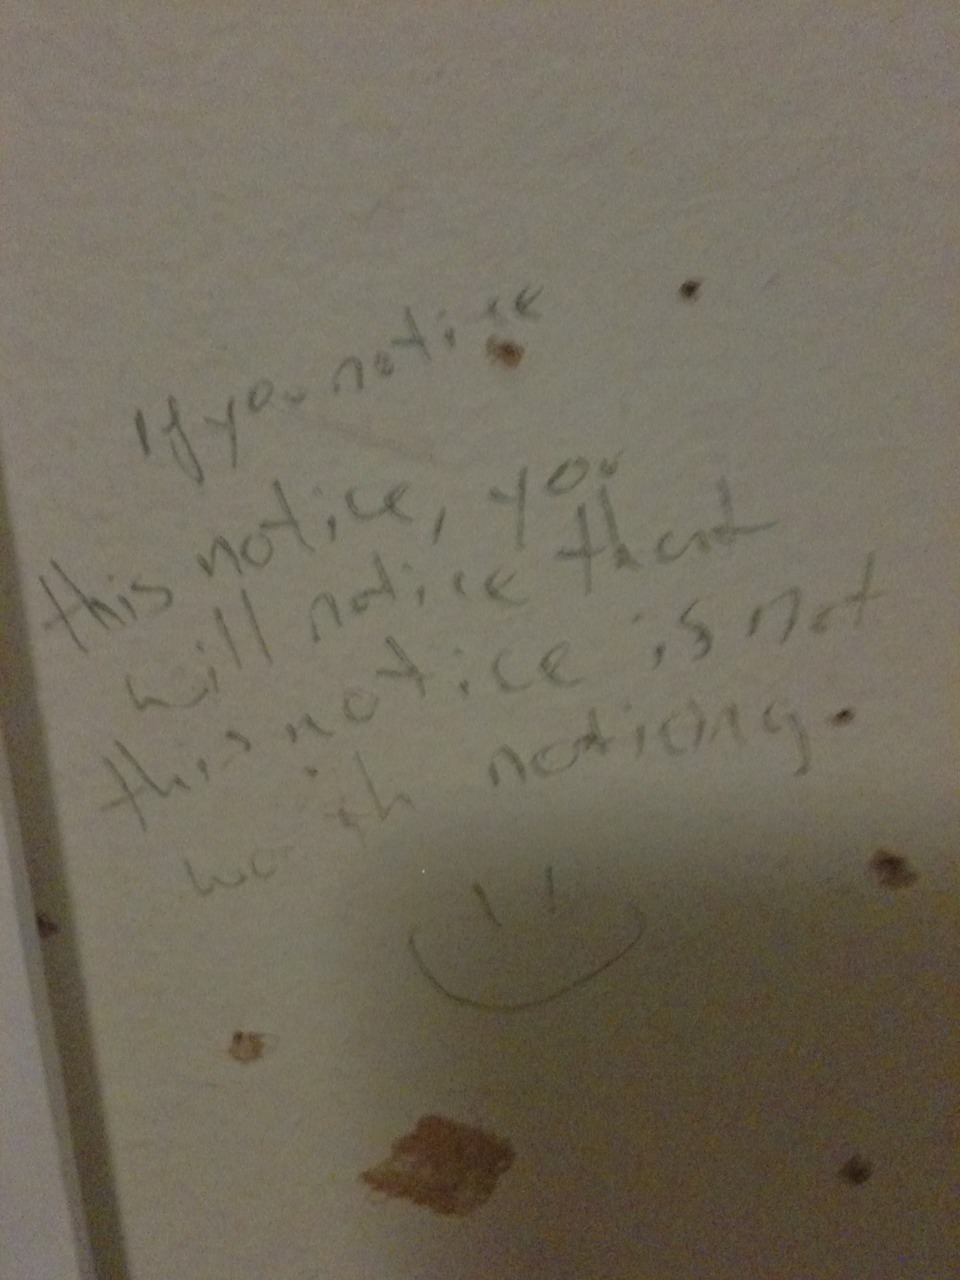 If you notice
this notice, you
will notice that
this notice is not
worth noticing.